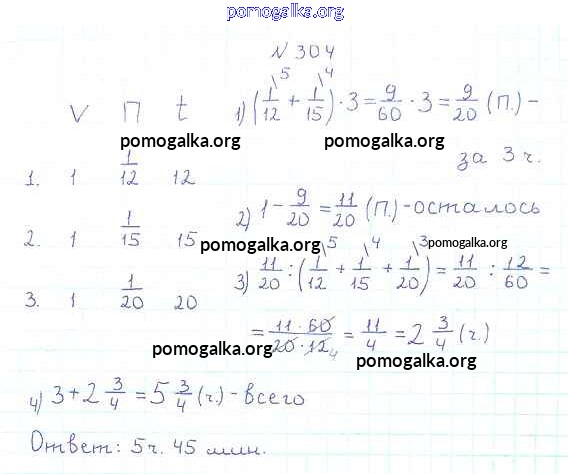 pomogalka.org
N 304
V П t
1. 1 1/12 12
2. 1 1/15 15
3. 1 1/20 20
1) (1/12 \5 + 1/15 \4) · 3 = 9/60 · 3 = 9/20 (П.) -
pomogalka.org pomogalka.org
за 3 ч.
2) 1 - 9/20 = 11/20 (П.) - осталось
pomogalka.org pomogalka.org
3) 11/20 : (1/12 \5 + 1/15 \4 + 1/20 \3) = 11/20 : 12/60 =
= 11 · 60 / 20 · 12 4 = 11/4 = 2 3/4 (ч.)
pomogalka.org pomogalka.org
4) 3 + 2 3/4 = 5 3/4 (ч.) - всего
Ответ: 5 ч. 45 мин.